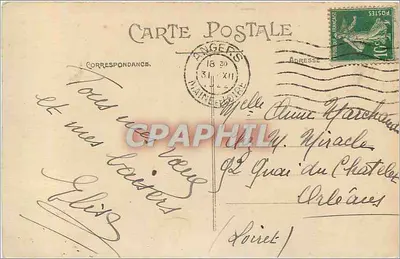 CARTE POSTALE
CORRESPONDANCE
ADRESSE
POSTES
10
ANGERS
16 30
31 XII
MAINE-ET-LOIRE
CPAPHIL
Tous mes vœux
et mes baisers
Elisa
Melle Anne Marchand
chez M. Miracle
92 Quai du Chatelet
Orléans
(Loiret)